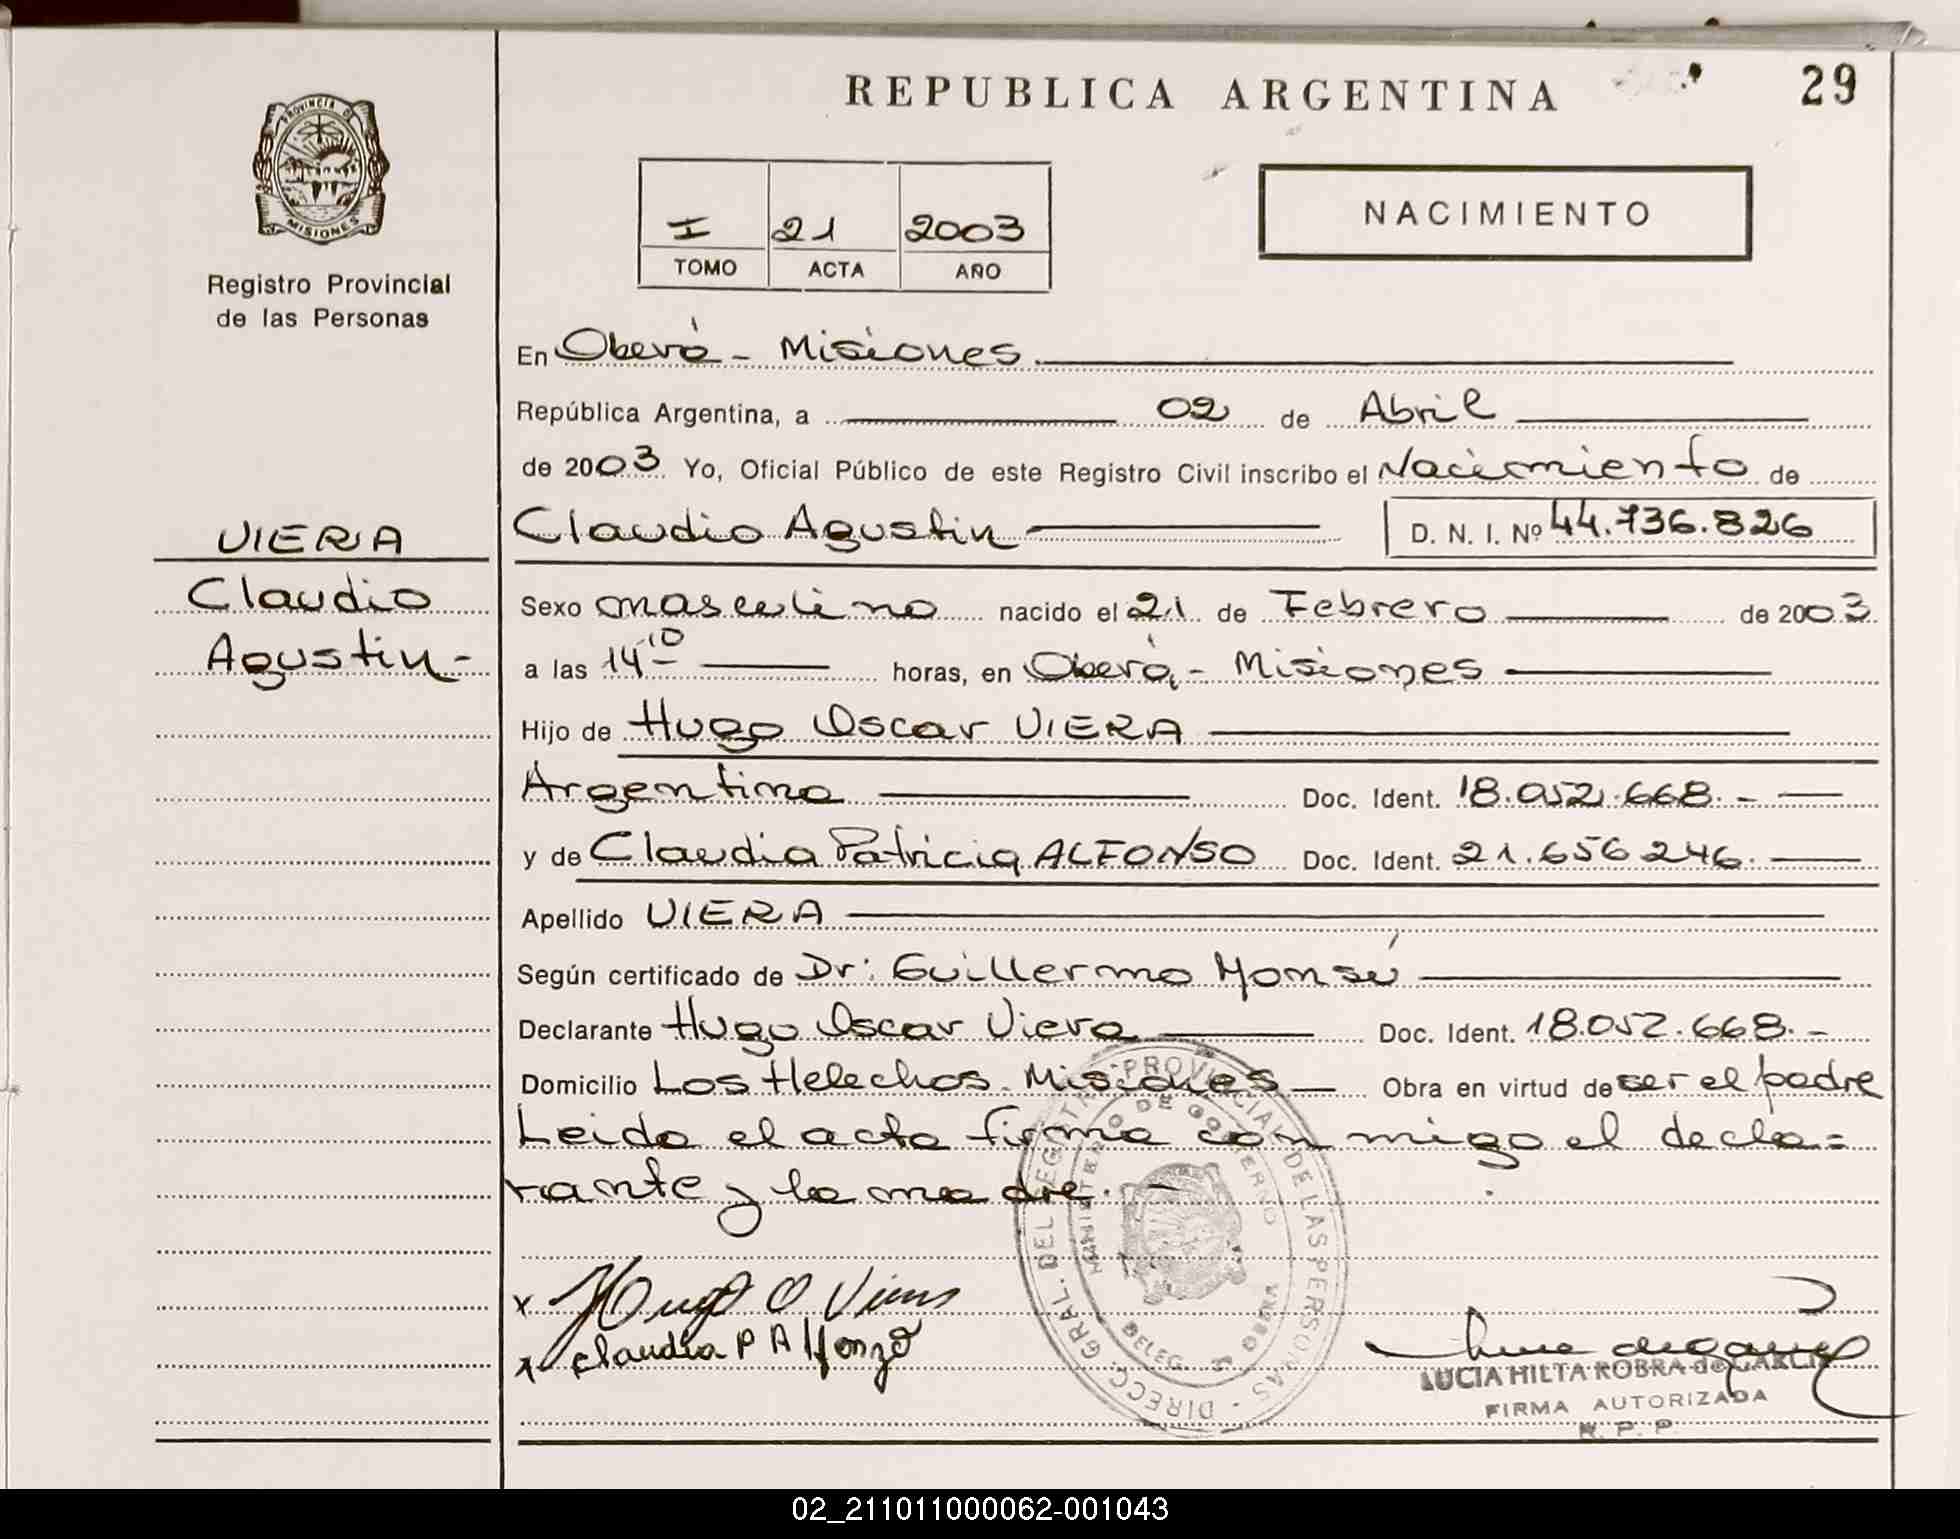 REPUBLICA ARGENTINA
29
PROVINCIA D
MISIONES
Registro Provincial
de las Personas
I 21 2003
TOMO ACTA AÑO
NACIMIENTO
En Oberá - Misiones.
República Argentina, a 02 de Abril
de 2003 Yo, Oficial Público de este Registro Civil inscribo el Nacimiento de
Claudio Agustin D. N. I. Nº 44.736.826
VIERA
Claudio
Agustin-
Sexo masculino nacido el 21 de Febrero de 2003
a las 14 10 horas, en Oberá, - Misiones
Hijo de Hugo Oscar VIERA
Argentino Doc. Ident. 18.052.668.-
y de Claudia Patricia ALFONSO Doc. Ident. 21.656246.
Apellido VIERA
Según certificado de Dr: Guillermo Monsú
Declarante Hugo Oscar Viera Doc. Ident. 18.052.668.-
Domicilio Los Helechos. Misiones Obra en virtud de ser el padre
Leida el acta firma con migo el decla=
rante y la madre. -
DIRECC. GRAL. DEL REGISTRO PROVINCIAL DE LAS PERSONAS
MINISTERIO DE GOBIERNO
DELEG.
x Hugo O Viera
x Claudia P Alfonzo
LUCIA HILTA ROBRA de GARCIA
FIRMA AUTORIZADA
R. P. P.
02_211011000062-001043